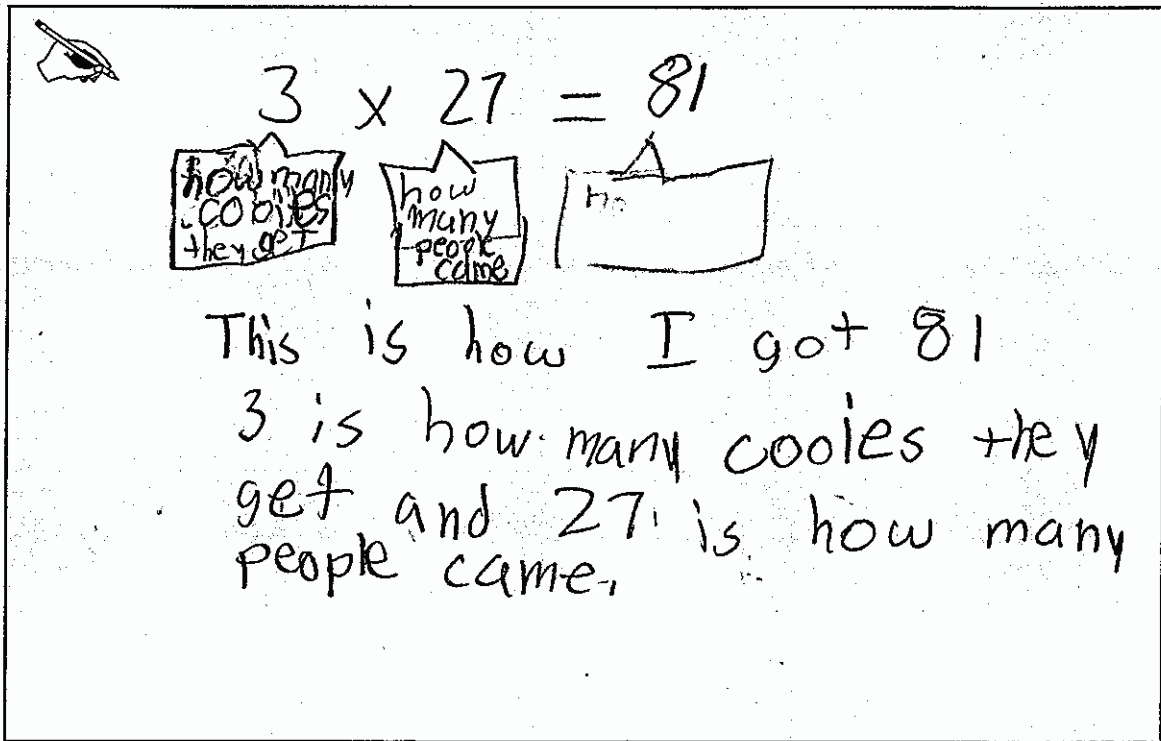 3 x 27 = 81
how many
cooies
they get
how
many
people
came
ho
This is how I got 81
3 is how many cooies they
get and 27 is how many
people came.